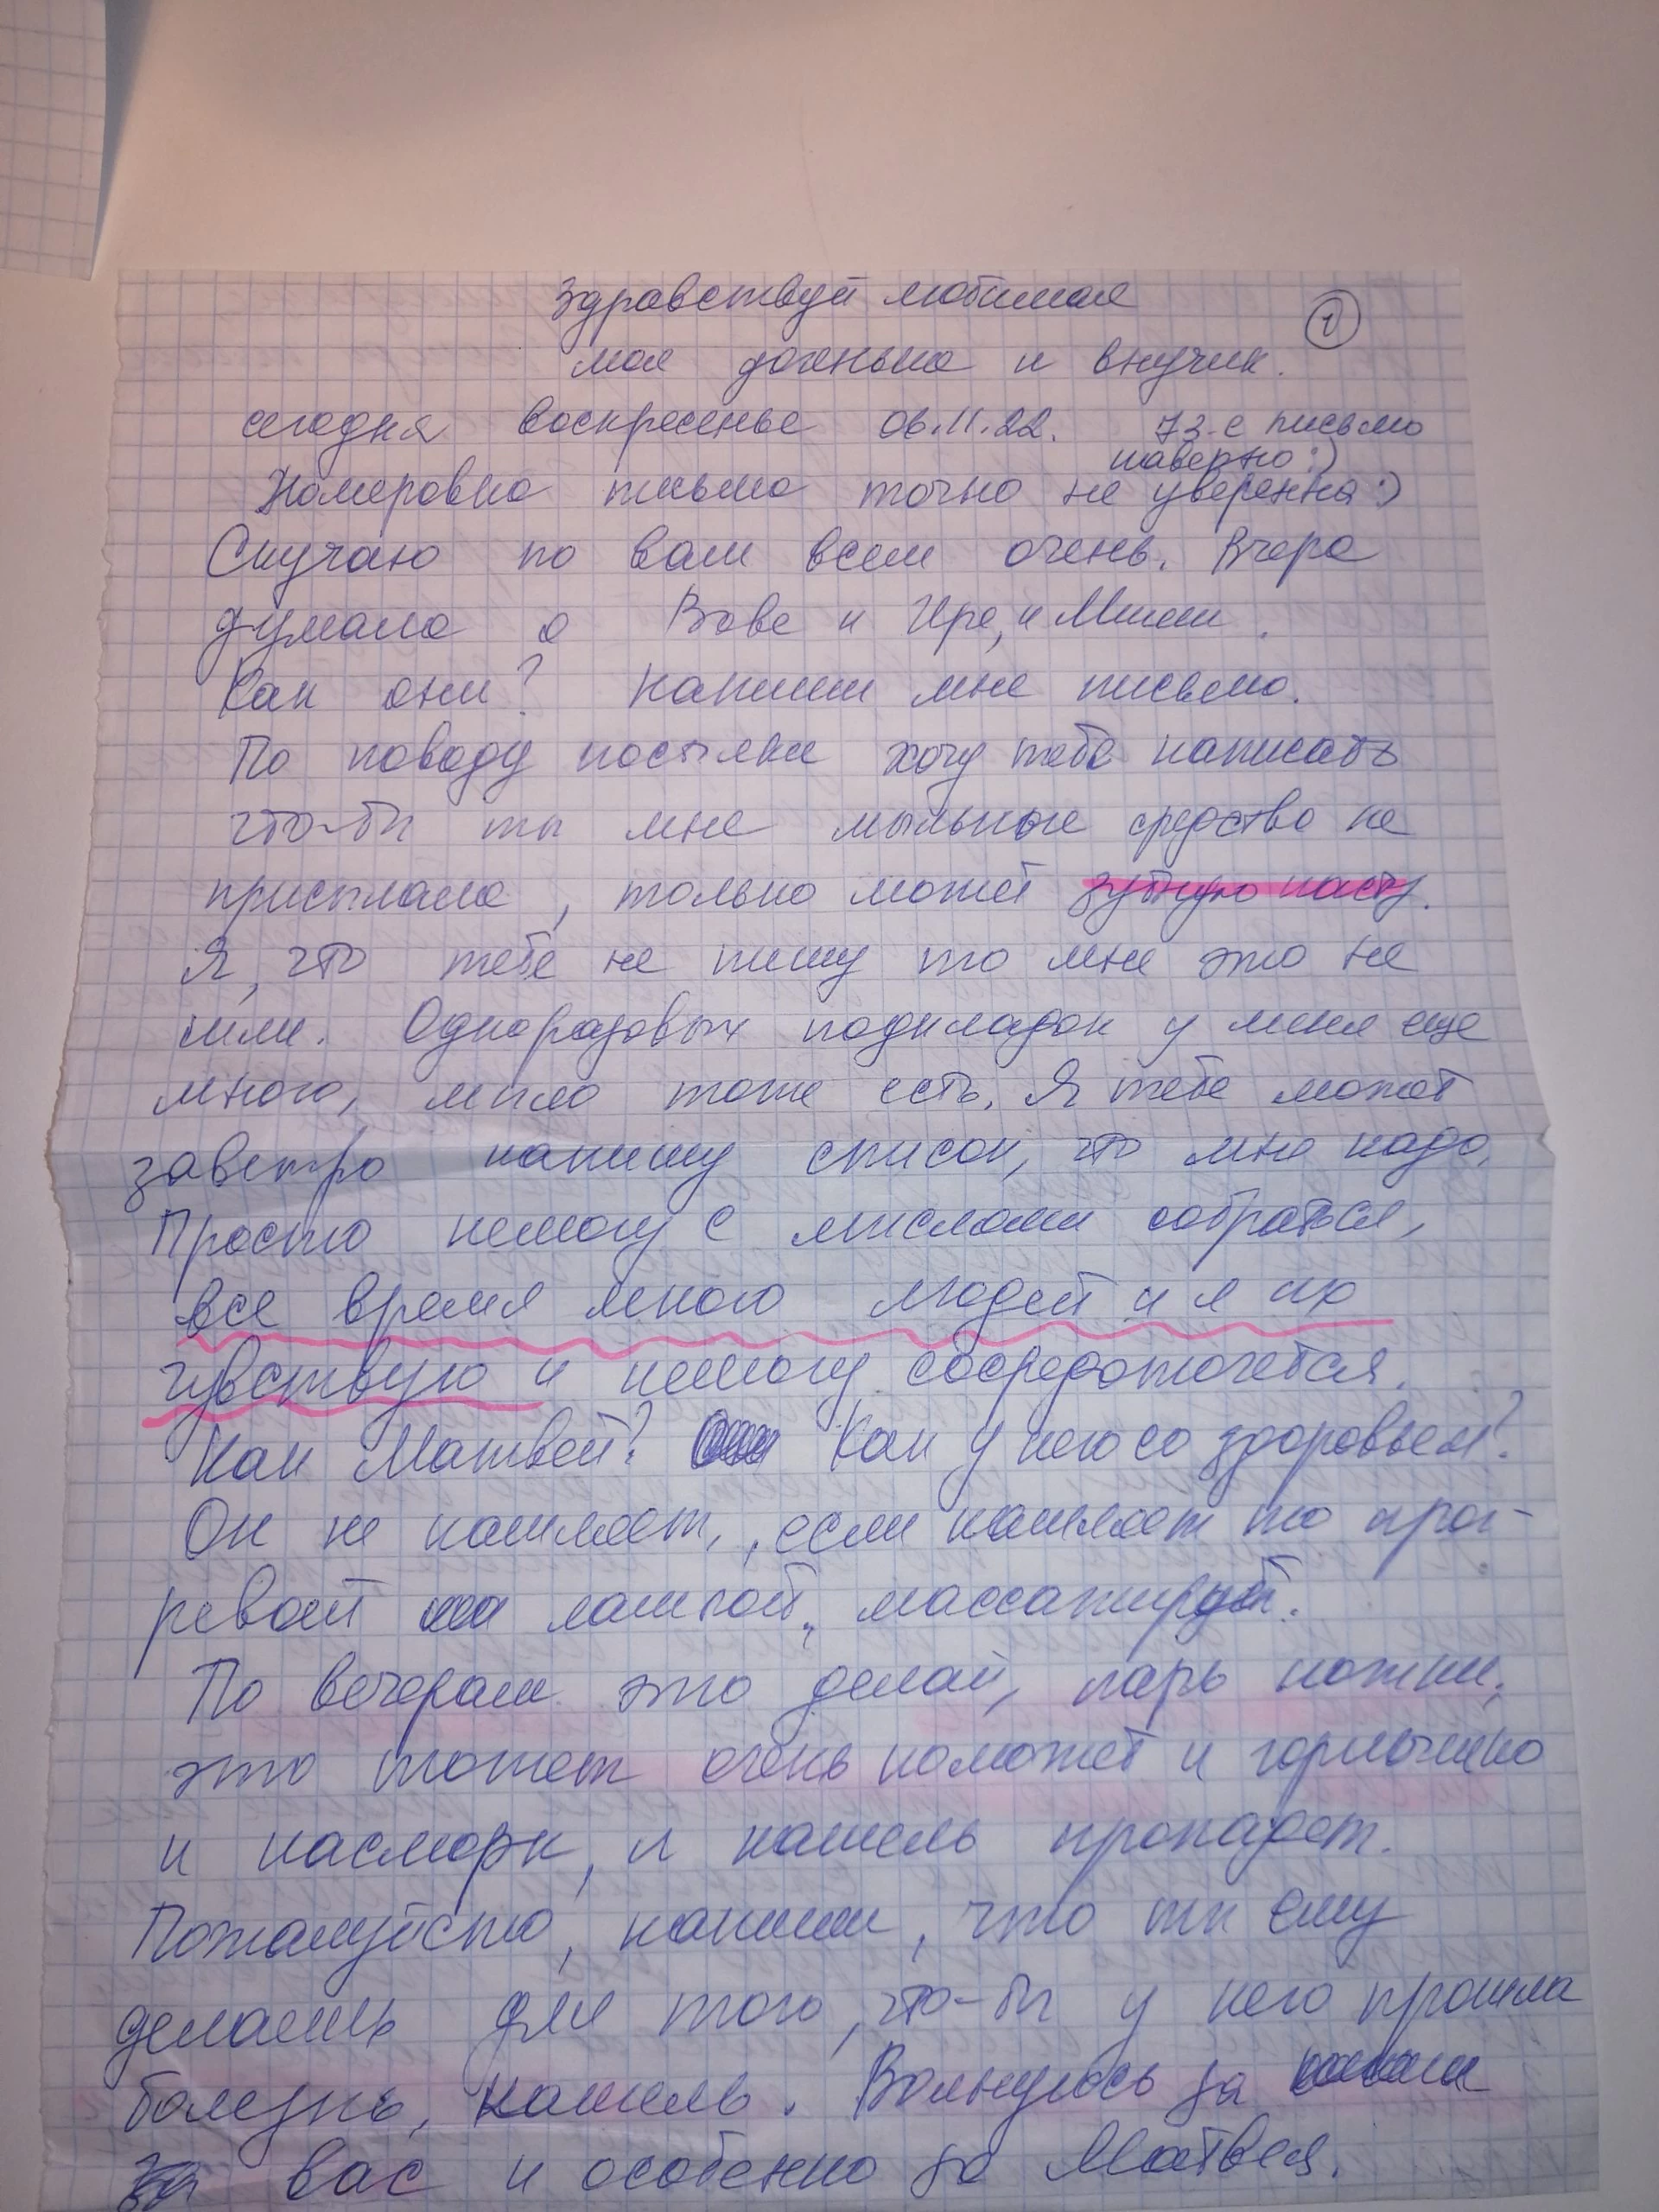 Здравствуй любимая
①
моя доченька и внучик.
сегодня воскресенье 06.11.22. 73-е письмо
наверно :)
Номеровка письма точно не уверенна :)
Скучаю по вам всем очень. Вчера
думала о Вове и Ире, и Миши.
Как они? Напиши мне письмо.
По поводу посылки хочу тебе написать
что-бы ты мне мыльные средства не
присылала, только может зубную пасту.
Я, что тебе не пишу то мне это не
шли. Одноразовых подкладок у меня еще
много, мыло тоже есть. Я тебе может
завстра напишу список, что мне надо.
Просто немогу с мыслями собраться,
все время много людей и я их
чувствую и немогу сосредоточется.
Как Матвей? Как у него со здоровьем?
Он не кашляет, если кашляет то прог-
ревай лампой, массажируй.
По вечерам это делай, парь ножки,
это может очень поможет и горлышко
и насморк, и кашель пропадет.
Пожалуйста, напиши, что ты ему
делаешь для того, что-бы у него прошла
болезнь, кашель. Волнуюсь за
за вас и особенно за Матвея.